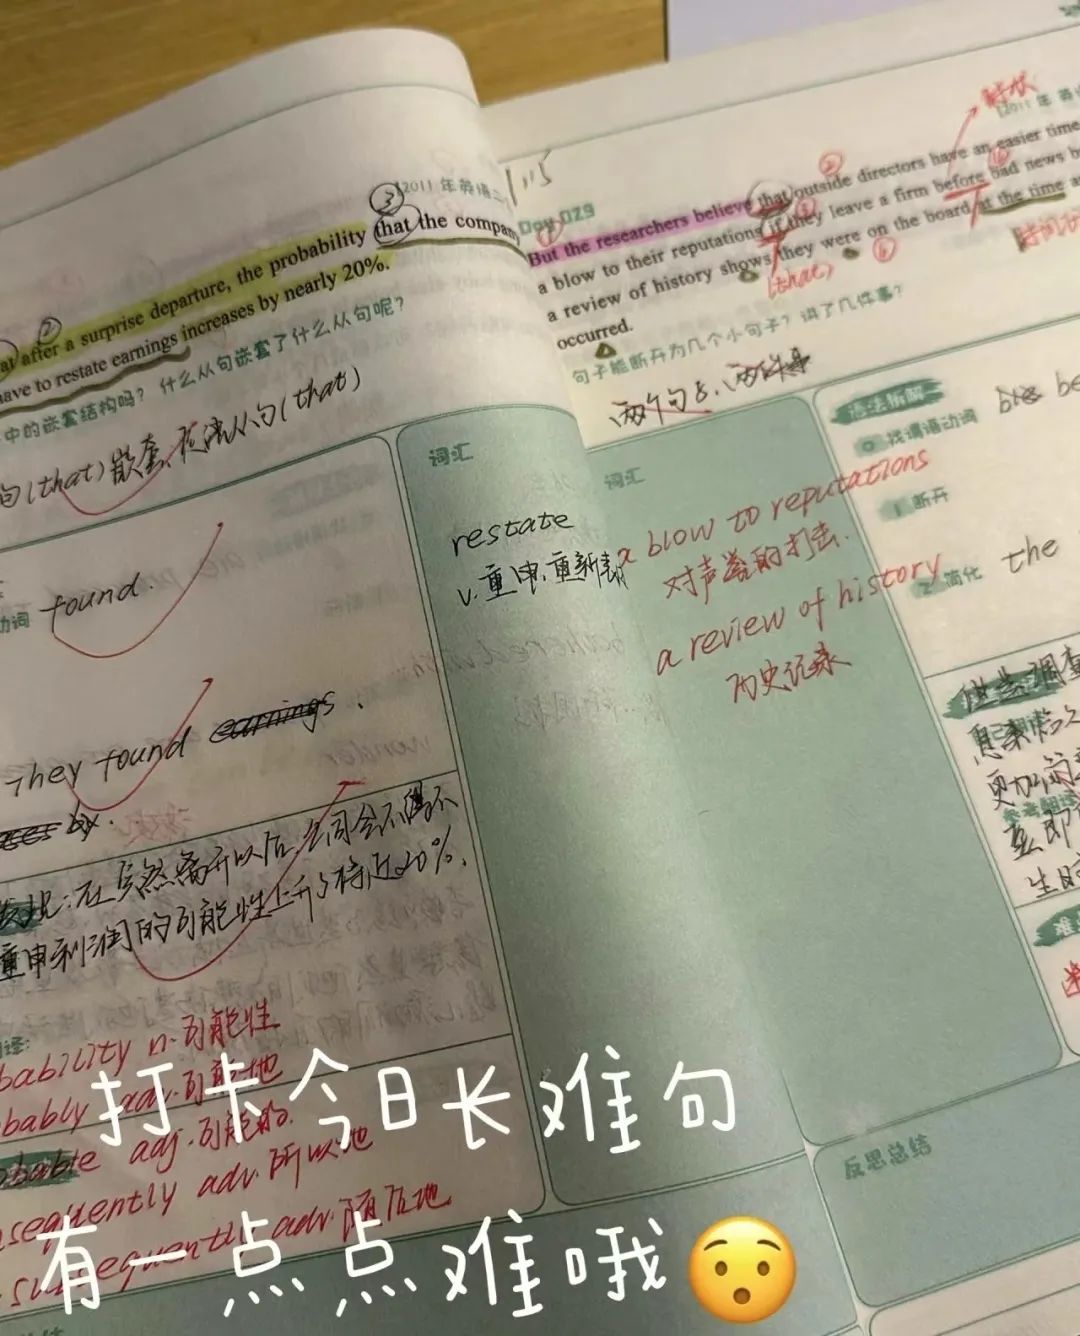 2011年英语二
③
that the company
②
at after a surprise departure, the probability
have to restate earnings increases by nearly 20%.
中的嵌套结构吗？什么从句嵌套了什么从句呢？
句(that)嵌套 从句(that)
动词 found.
They found earnings.
by.
发现：在突然离开以后，公司会不得不
重申利润的可能性上升了将近20%.
译：
bability n.可能性
bably adv.可能地
obable adj.可能的.
nsequently adv.所以地
subsequently adv.随后地
词汇
restate
v.重申,重新表
1.15
Day 029
2011年 英语
But the researchers believe that outside directors have an easier time
a blow to their reputations if they leave a firm before bad news b
a review of history shows they were on the board at the time a
occurred.
(that)
句子能断开为几个小句子？讲了几件事？
两个句子、两件事
词汇
a blow to reputations
对声誉的打击.
a review of history
历史记录
语法拆解
0 找谓语动词 be
1 断开
2 简化 the
更加
立即
反思总结
打卡今日长难句
有一点点难哦😯